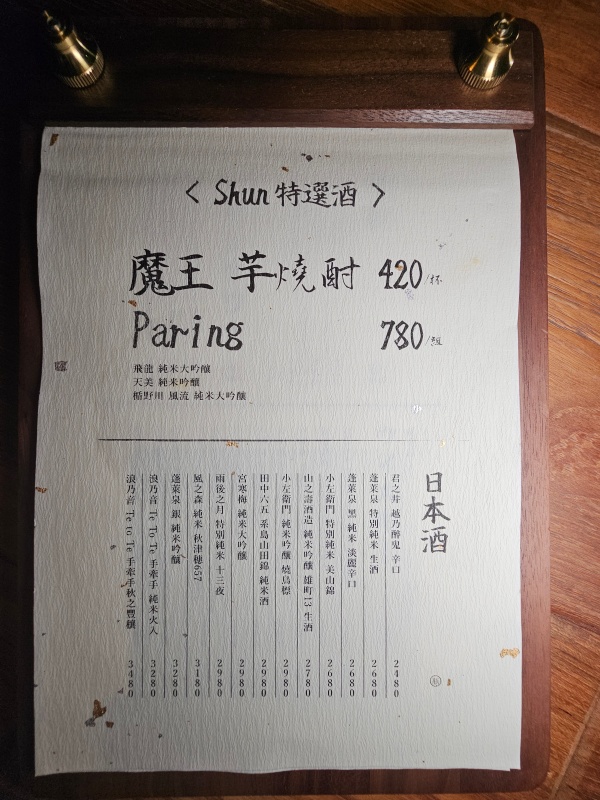 〈 Shun 特選酒 〉
魔王 芋燒酎 420/杯
Paring 780/組
飛龍 純米大吟釀
天美 純米吟釀
楯野川 風流 純米大吟釀
小
日本酒
瓶
君之井 越乃醉鬼 辛口 2480
蓬萊泉 特別純米 生酒 2680
蓬萊泉 黑 純米 淡麗辛口 2680
小左衛門 特別純米 美山錦 2680
山之壽酒造 純米吟釀 雄町13 生酒 2780
小左衛門 純米吟釀 燒鳥標 2980
田中六五 系島山田錦 純米酒 2980
宮寒梅 純米大吟釀 2980
雨後之月 特別純米 十三夜 2980
風之森 純米 秋津穗657 3180
蓬萊泉 銀 純米吟釀 3280
浪乃音 Te to Te 手牽手 純米火入 3280
浪乃音 Te to Te 手牽手秋之豐穰 3480